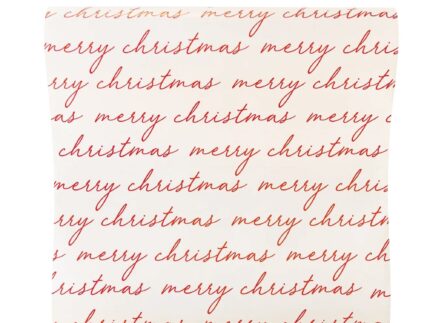 christmas merry christmas
merry christmas merry chris
rry christmas merry christm
as merry christmas merry c
christmas merry christmas
merry christmas merry chri
rry christmas merry christm
s merry christmas merry ch
hristmas merry christmas m
christmas merry christmas